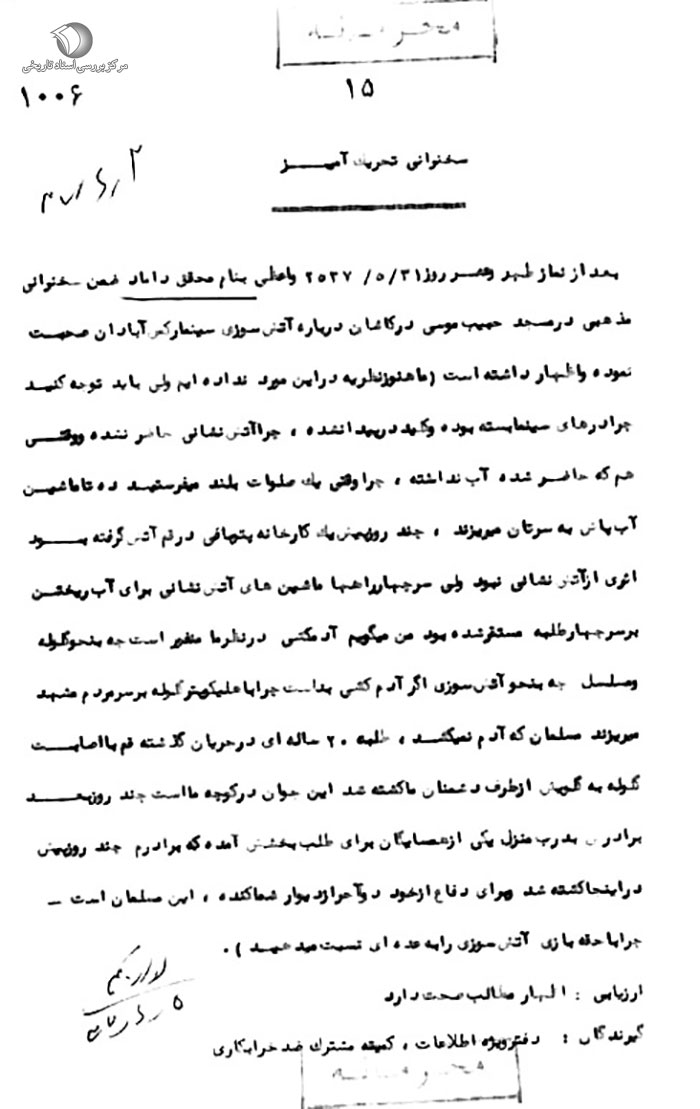 محرمانه
مرکز بررسی اسناد تاریخی
۱۵
۱۰۰۶
سخنرانی تحریک آمیز
بعد از نماز ظهر وعصر روز ۲۵۳۷ /۵/۳۱ واعظی بنام محقق داماد ضمن سخنرانی
مذهبی درمسجد حبیب موسی درکاشان درباره آتش سوزی سینمارکس آبادان صحبت
نموده واظهار داشته است (ماهنوزنظریه دراین مورد نداده ایم ولی باید توجه کنید
چرادرهای سینمابسته بوده وکلید درپیدانشده ، چراآتش نشانی حاضر نشده ووقتی
هم که حاضر شده آب نداشته ، چراوقتی یک صلوات بلند میفرستید ده تاماشین
آب پاش به سرتان میریزند ، چند روزپیش یک کارخانه پنبه‌بافی درقم آتش گرفته بود
اثری ازآتش نشانی نبود ولی سرچهارراهها ماشین های آتش نشانی برای آب ریختن
برسرچهارطلبه مستقرشده بود من میگویم آدمکشی درنظرما منفور است چه بنحوگلوله
ومسلسل چه بنحو آتش سوزی اگر آدم کشی بداست چراباهلیکوپترگلوله برسرمردم مشهد
میریزند مسلمان که آدم نمیکشد ، طلبه ۲۰ ساله ای درجریان گذشته قم بااصابت
گلوله به گلویش ازطرف دشمنان ماکشته شد این جوان درکوچه مااست چند روزبعد
برادرش بدرب منزل یکی ازهمسایگان برای طلب بخشش آمده که برادرم چند روزپیش
دراینجاکشته شد وبرای دفاع ازخود دوآجرازدیوار شماکنده ، این مسلمان است -
چراباحقه بازی آتش سوزی رابه عده ای نسبت میدهید ) .
ارزیابی : اظهار مطالب صحت دارد
گیرندگان : دفترویژه اطلاعات ، کمیته مشترک ضدخرابکاری
محرمانه